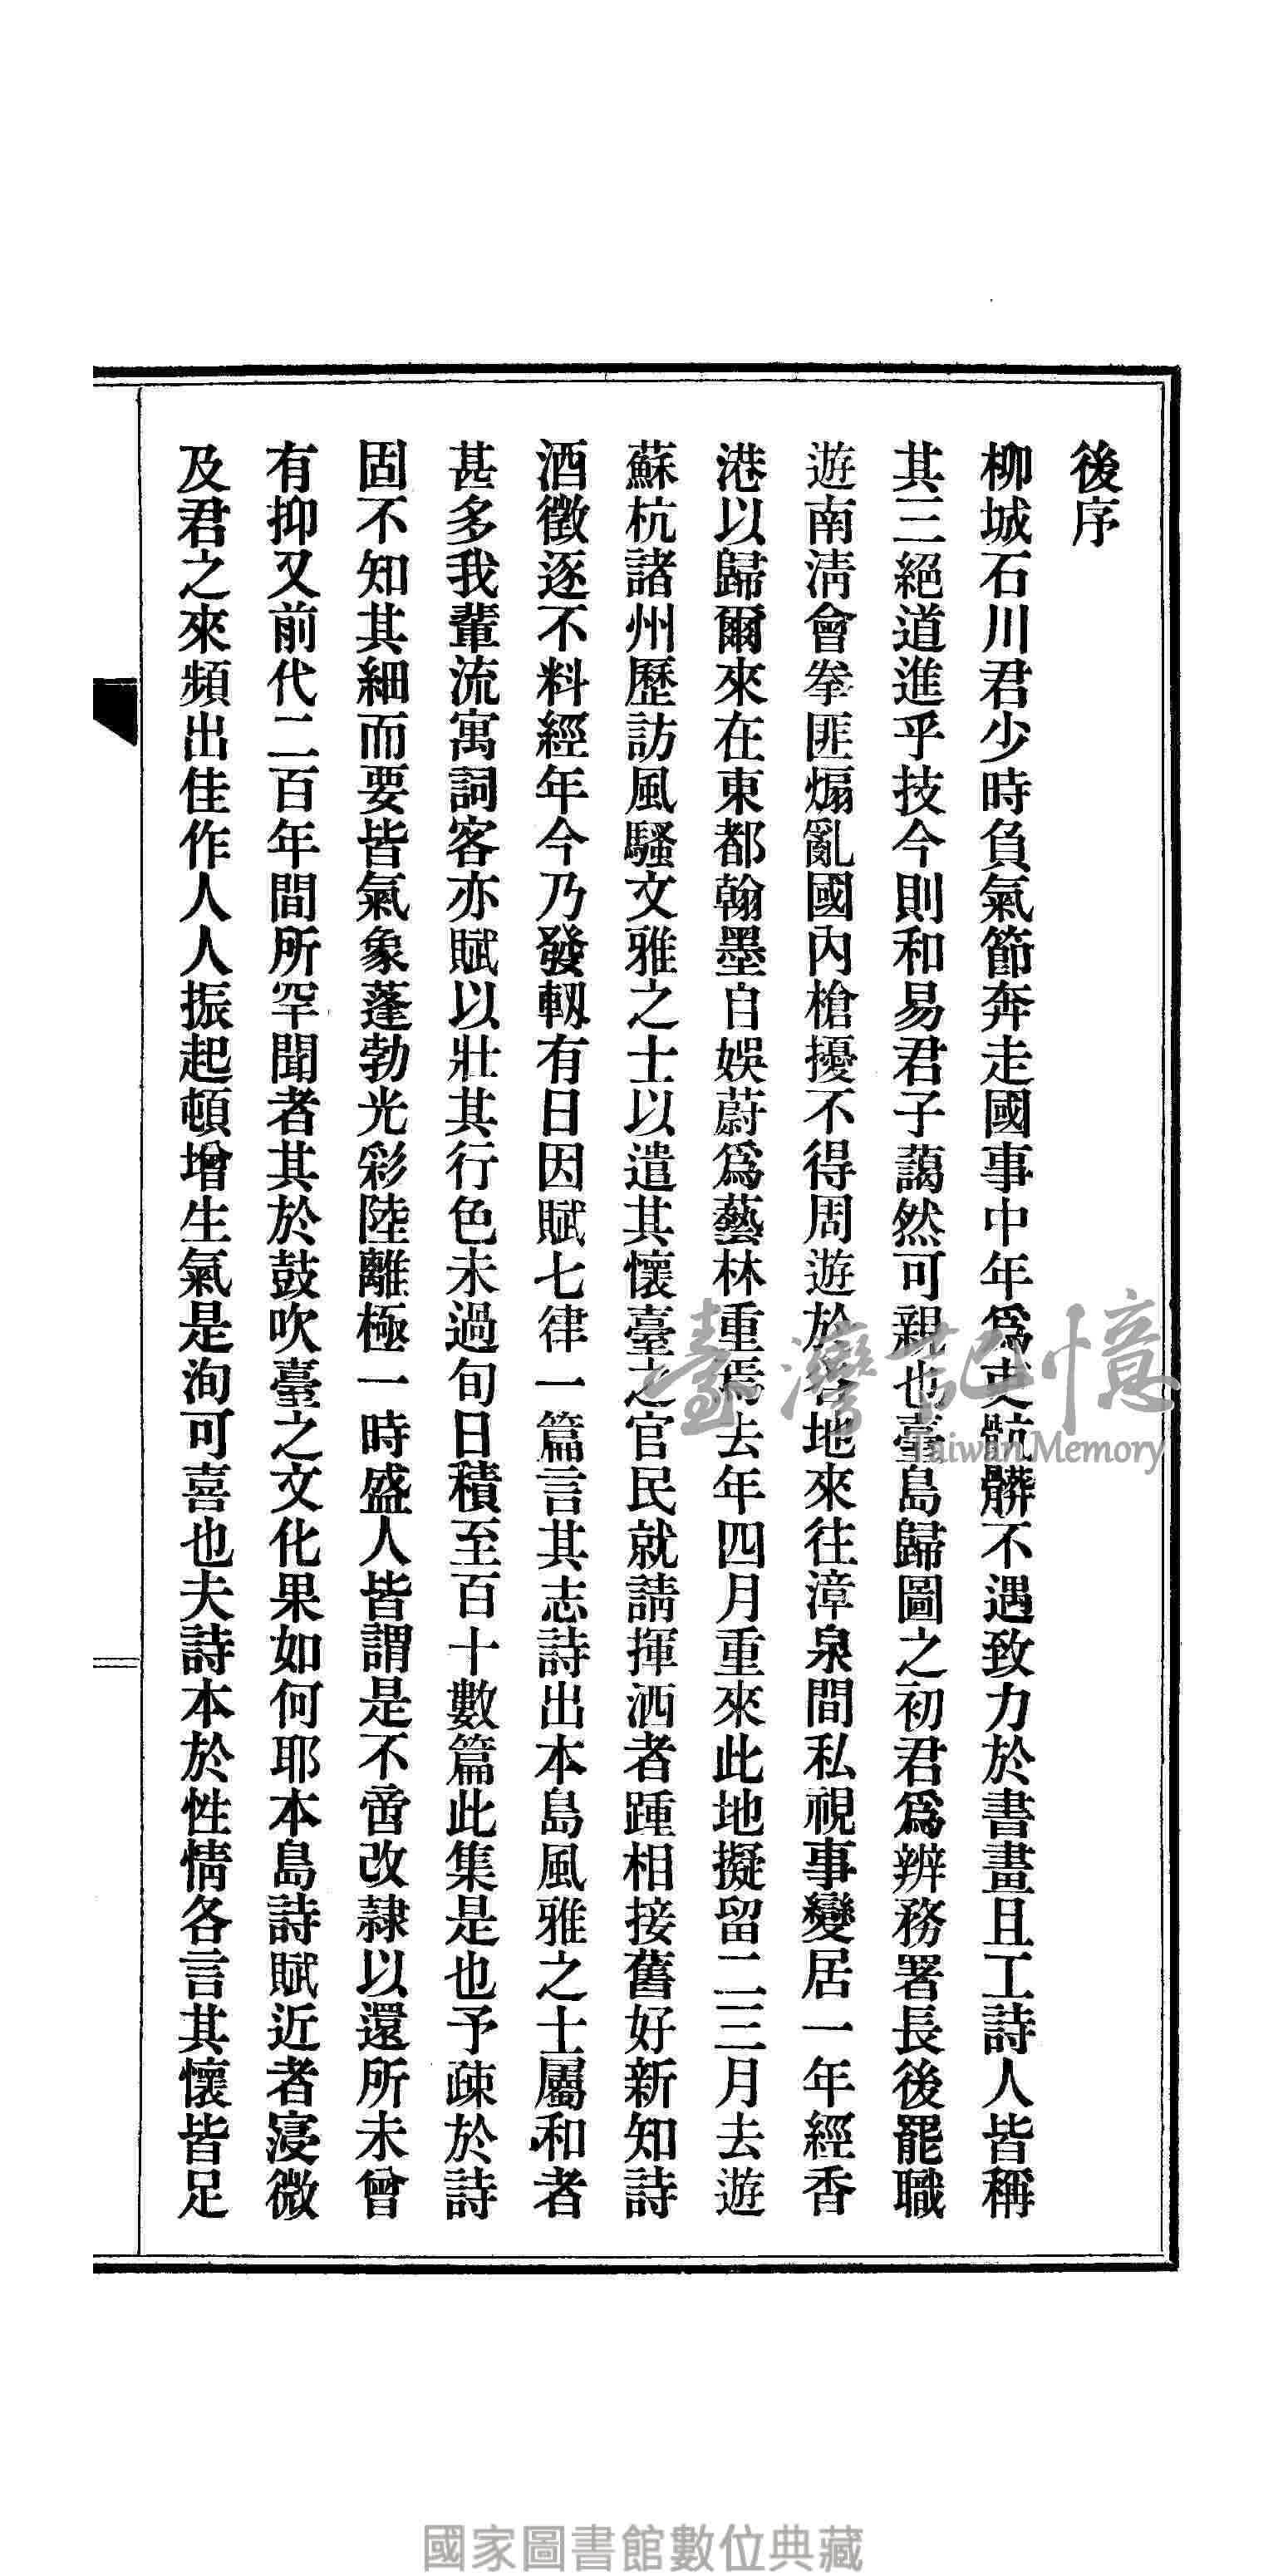 後序
柳城石川君少時負氣節奔走國事中年爲吏骯髒不遇致力於書畫且工詩人皆稱
其三絕道進乎技今則和易君子藹然可親也臺島歸圖之初君爲辨務署長後罷職
遊南淸會拳匪煽亂國內槍擾不得周遊於各地來往漳泉間私視事變居一年經香
港以歸爾來在東都翰墨自娛蔚爲藝林重焉去年四月重來此地擬留二三月去遊
蘇杭諸州歷訪風騷文雅之士以遣其懷臺之官民就請揮洒者踵相接舊好新知詩
酒徵逐不料經年今乃發軔有日因賦七律一篇言其志詩出本島風雅之士屬和者
甚多我輩流寓詞客亦賦以壯其行色未過旬日積至百十數篇此集是也予疎於詩
固不知其細而要皆氣象蓬勃光彩陸離極一時盛人皆謂是不啻改隷以還所未曾
有抑又前代二百年間所罕聞者其於鼓吹臺之文化果如何耶本島詩賦近者寖微
及君之來頻出佳作人人振起頓增生氣是洵可喜也夫詩本於性情各言其懷皆足
臺灣記憶
Taiwan Memory
國家圖書館數位典藏